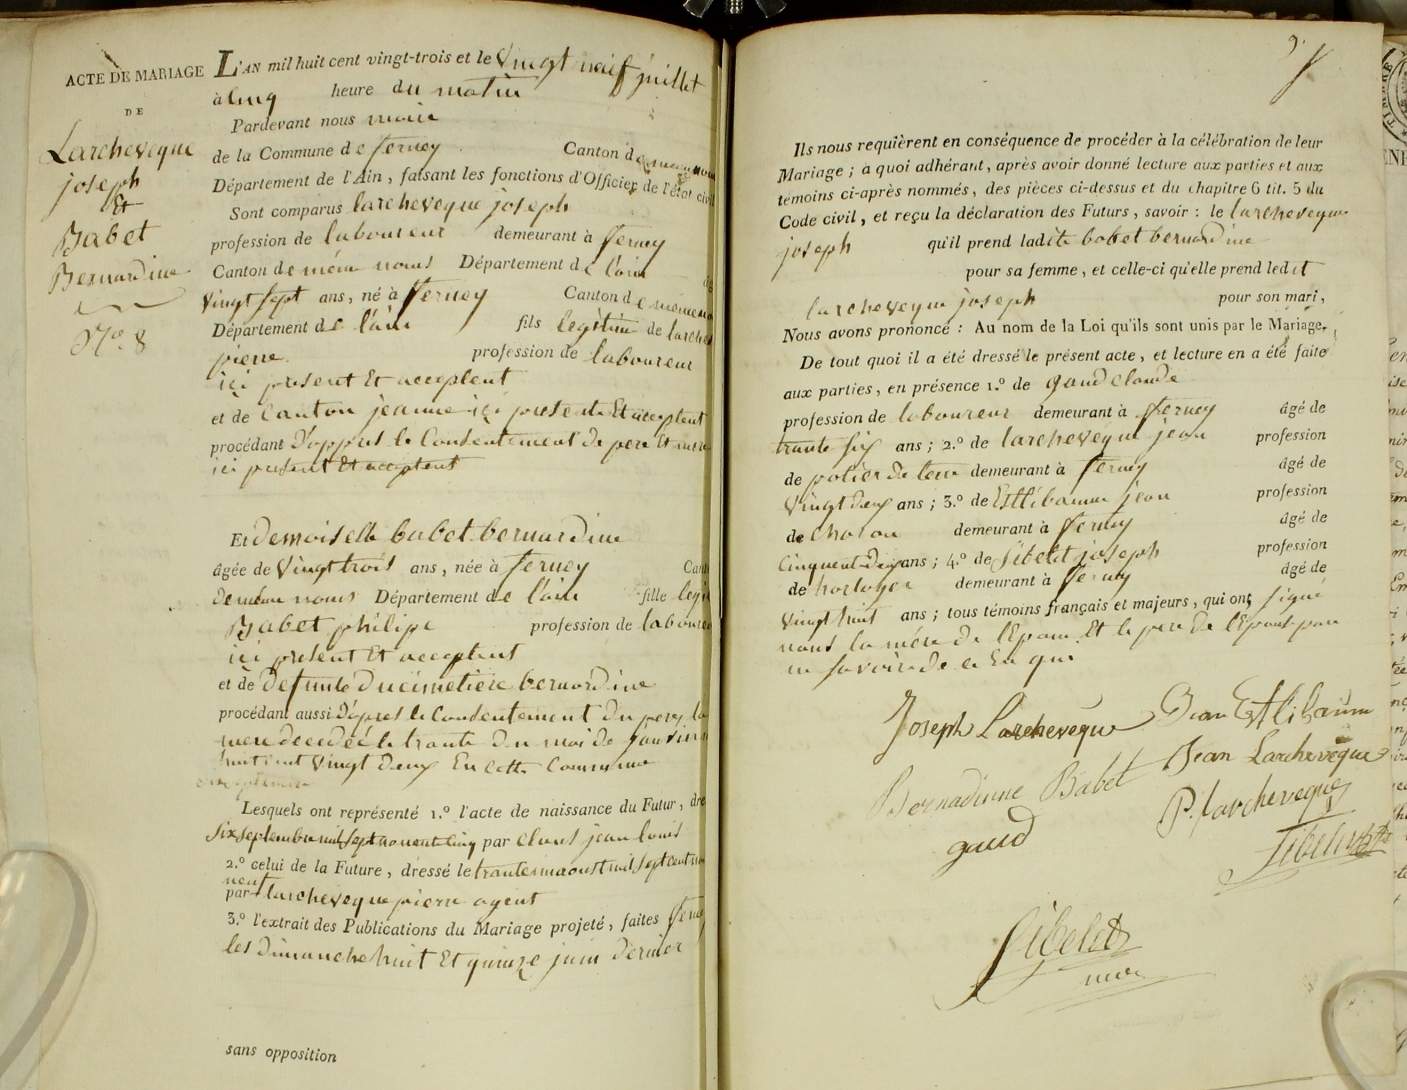 ACTE DE MARIAGE
DE
Larcheveque
joseph
Et
Babet
Bernardine
N.o 8
L'AN mil huit cent vingt-trois et le Vingt neuf juillet
à Cinq heure du matin
Pardevant nous maire
de la Commune de ferney Canton de meme nom
Département de l'Ain, faisant les fonctions d'Officier de l'état civil
Sont comparus larcheveque joseph
profession de laboureur demeurant à ferney
Canton de même nom Département de l'ain
Vingt sept ans, né à ferney Canton de meme
Département de l'ain fils legitime de larche
pierre profession de laboureur
ici present Et acceptent
et de Canton jeanne ici presente Et acceptent
procédant D'appres le Consentement de pere Et mere
ici present Et acceptent
Et Demoiselle babet bernardine
âgée de Vingt trois ans, née à ferney Cant
de même nom Département de l'ain fille legi
Babet philipe profession de laboure
ici present Et acceptent
et de Defunte Ducimetiere bernardine
procédant aussi D'apres le Consentement du pere, la
mere decedée le trante du moi de
huit cent Vingt Deux En cette Commune
Lesquels ont représenté 1.º l'acte de naissance du Futur, dre
Six septembre mil sept nonente Cinq par jean louis
2.º celui de la Future, dressé le trante un aoust mil sept cent
neuf
par larcheveque pierre agent
3.º l'extrait des Publications du Mariage projeté, faites ferney
les Dimanche huit Et quinze juin Dernier
sans opposition
Ils nous requièrent en conséquence de procéder à la célébration de leur
Mariage ; à quoi adhérant, après avoir donné lecture aux parties et aux
témoins ci-après nommés, des pièces ci-dessus et du chapitre 6 tit. 5 du
Code civil, et reçu la déclaration des Futurs, savoir : le larcheveque
joseph qu'il prend ladite babet bernardine
pour sa femme, et celle-ci qu'elle prend ledit
larcheveque joseph pour son mari,
Nous avons prononcé : Au nom de la Loi qu'ils sont unis par le Mariage.
De tout quoi il a été dressé le présent acte, et lecture en a été faite
aux parties, en présence 1.º de gaud Claude
profession de laboureur demeurant à ferney âgé de
trante six ans ; 2.º de larcheveque jean profession
de potier de terre demeurant à ferney âgé de
Vingt deux ans ; 3.º de Estlibaum jean profession
de Charon demeurant à ferney âgé de
Cinquent deux ans ; 4.º de Sibelet joseph profession
de horloger demeurant à ferney âgé de
Vingt huit ans ; tous témoins français et majeurs, qui ont signé
nous la mére de l'Epoux Et le pere de l'Epouse pour
ne savoir de ce En qui
Joseph Larcheveque Jean Estlibaum
Bernadinne Babet Jean Larcheveque
gaud P. larcheveque
Sibelet
Sibelet
maire